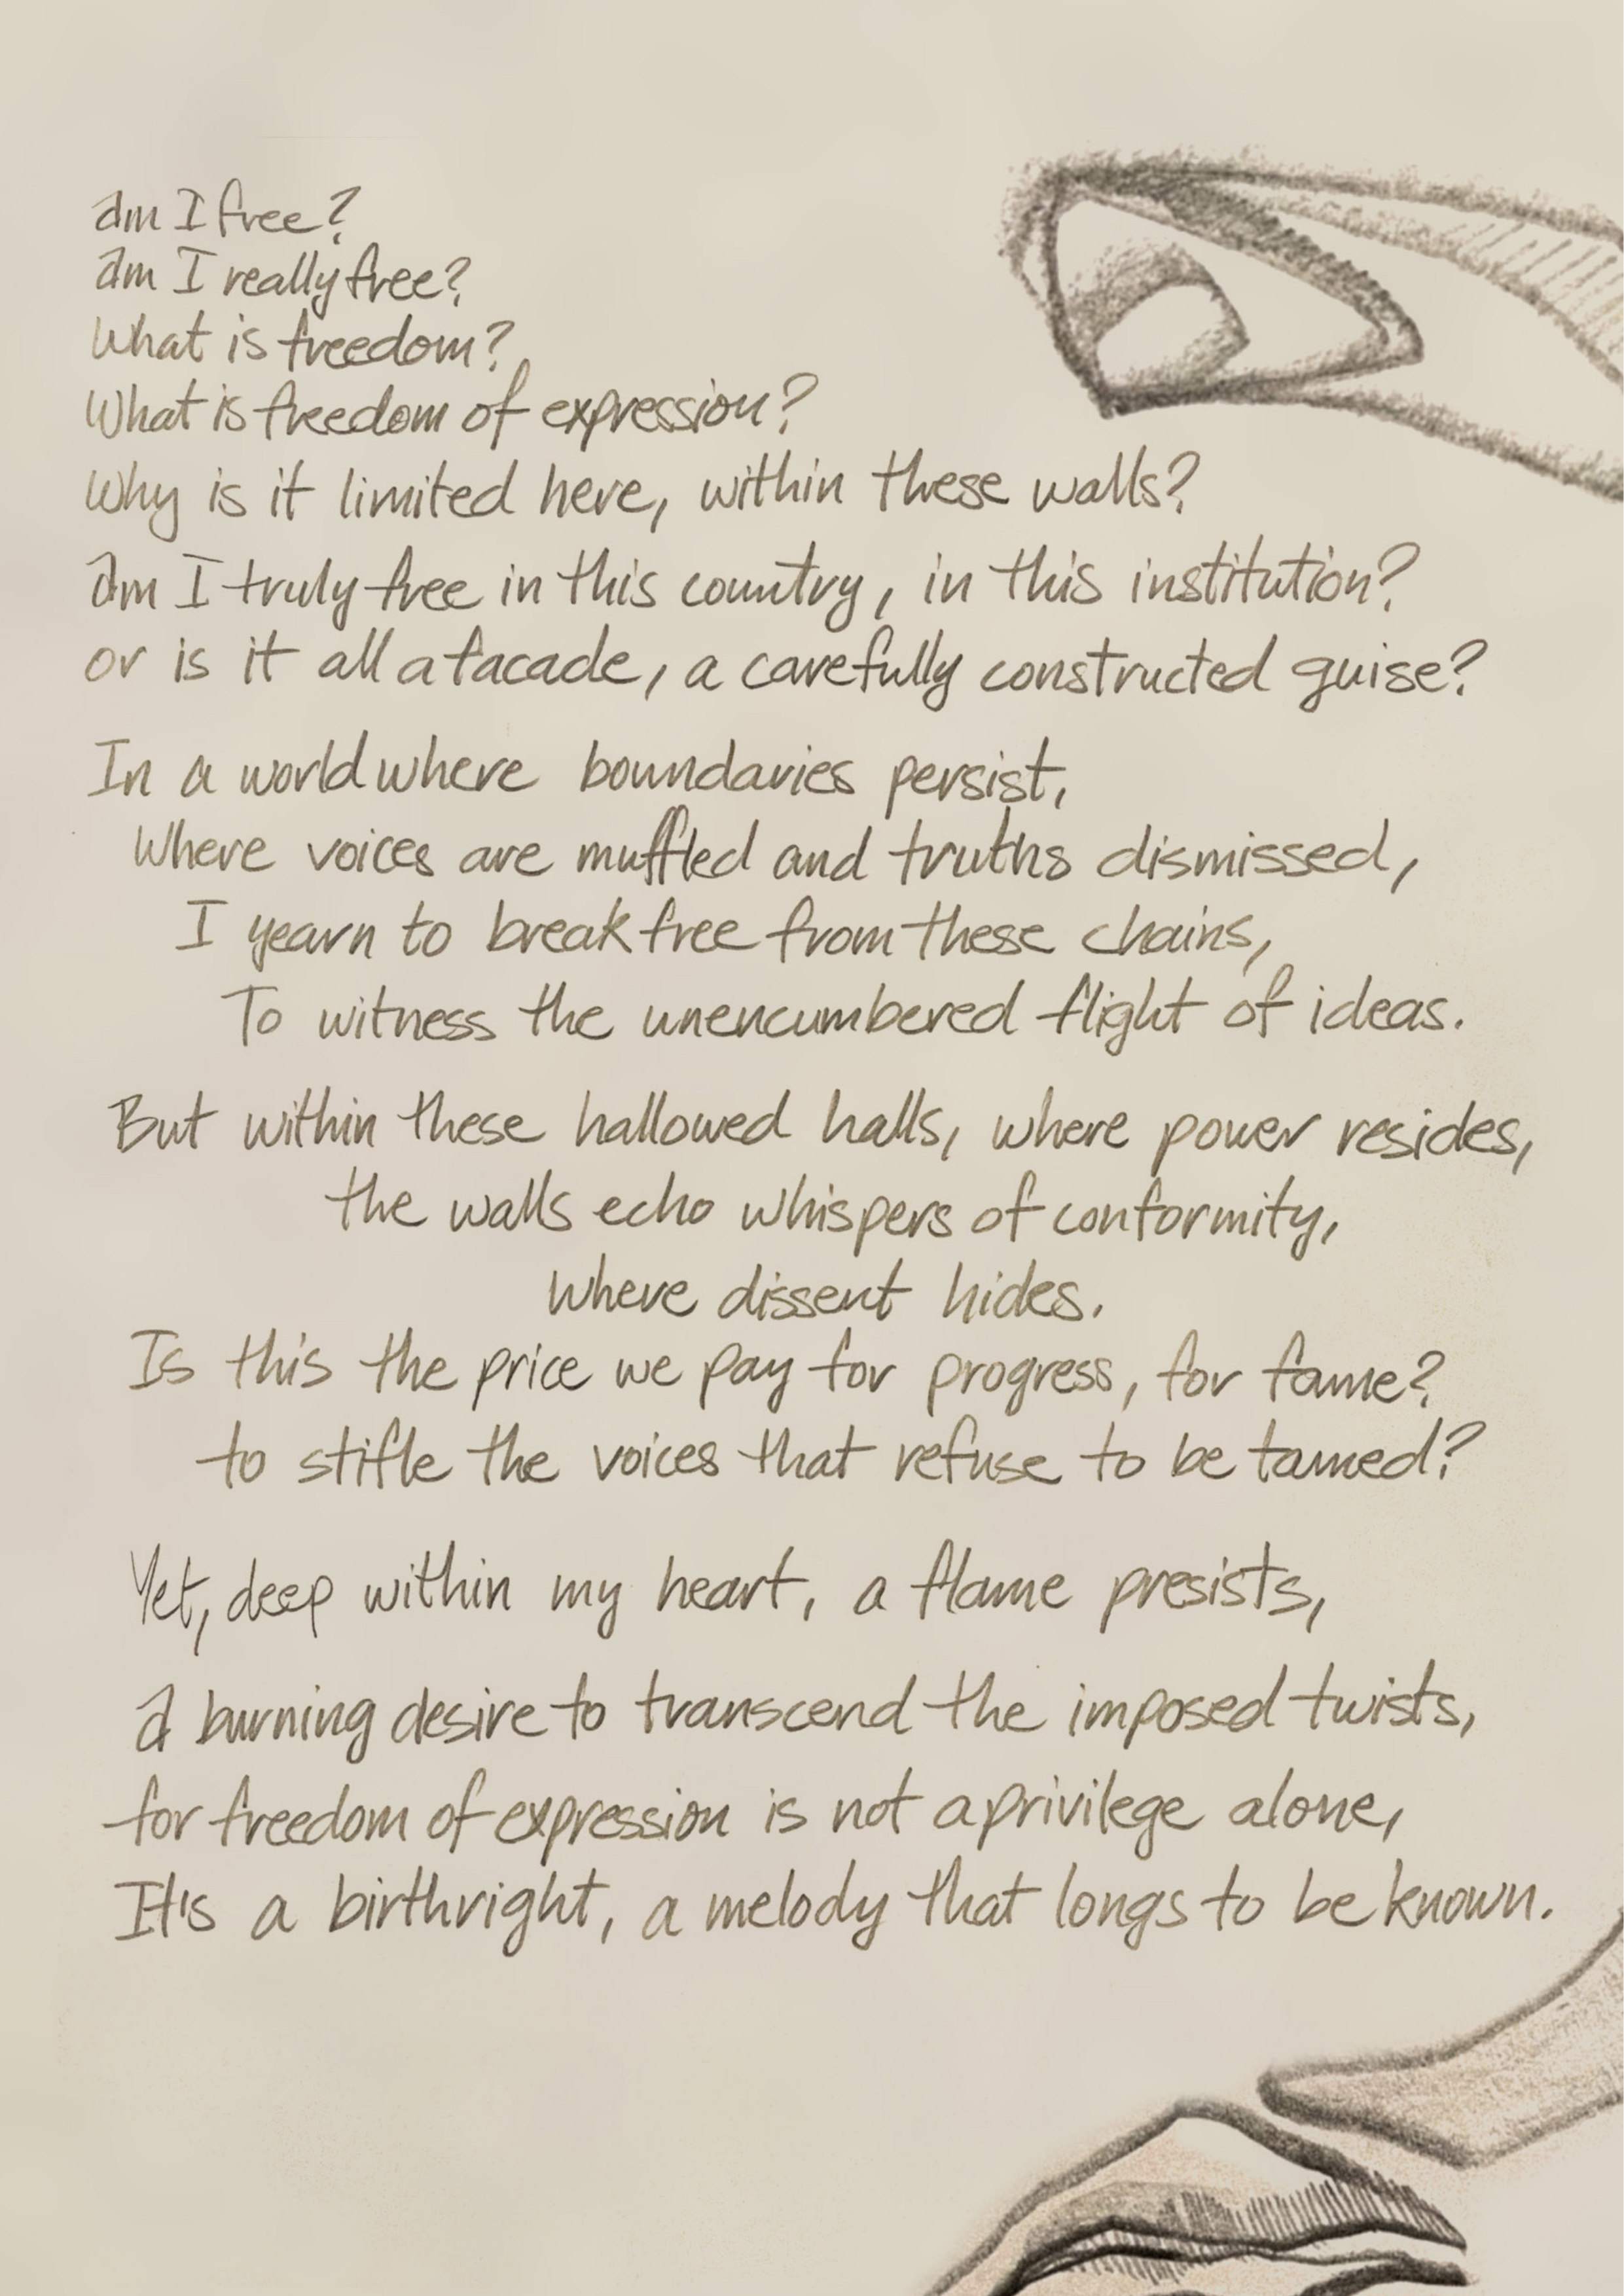 Am I free?
Am I really free?
What is freedom?
What is freedom of expression?
Why is it limited here, within these walls?
Am I truly free in this country, in this institution?
or is it all a facade, a carefully constructed guise?
In a world where boundaries persist,
Where voices are muffled and truths dismissed,
I yearn to break free from these chains,
To witness the unencumbered flight of ideas.
But within these hallowed halls, where power resides,
the walls echo whispers of conformity,
Where dissent hides.
Is this the price we pay for progress, for fame?
to stifle the voices that refuse to be tamed?
Yet, deep within my heart, a flame presists,
A burning desire to transcend the imposed twists,
for freedom of expression is not a privilege alone,
It's a birthright, a melody that longs to be known.